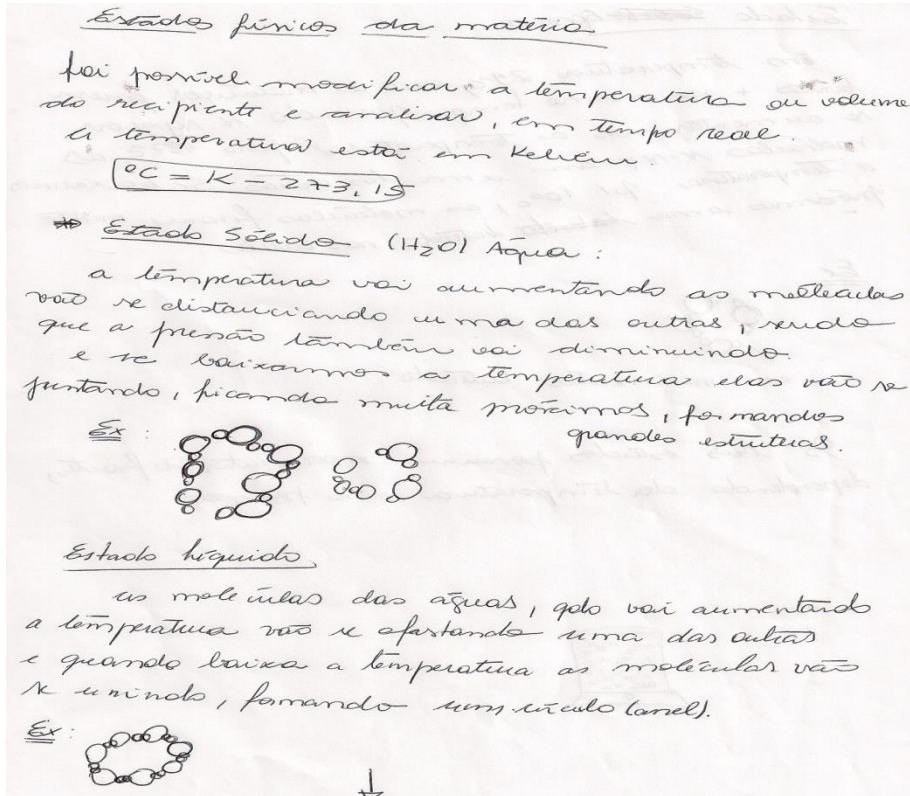 Estados físicos da matéria
foi possível modificar a temperatura ou volume
do recipiente e analisar, em tempo real.
a temperatura está em Kelvin.
°C = K - 273,15
Estado Sólido (H₂O) Água :
a temperatura vai aumentando as moléculas
vão se distanciando uma das outras, sendo
que a pressão também vai diminuindo.
e se baixarmos a temperatura elas vão se
juntando, ficando muita próximos, formandos
grandes estruturas.
Ex :
Estado líquido
as moléculas das águas, qdo vai aumentando
a temperatura vão se afastando uma das outras
e quando baixa a temperatura as moléculas vão
se unindo, formando um círculo (anel).
Ex :